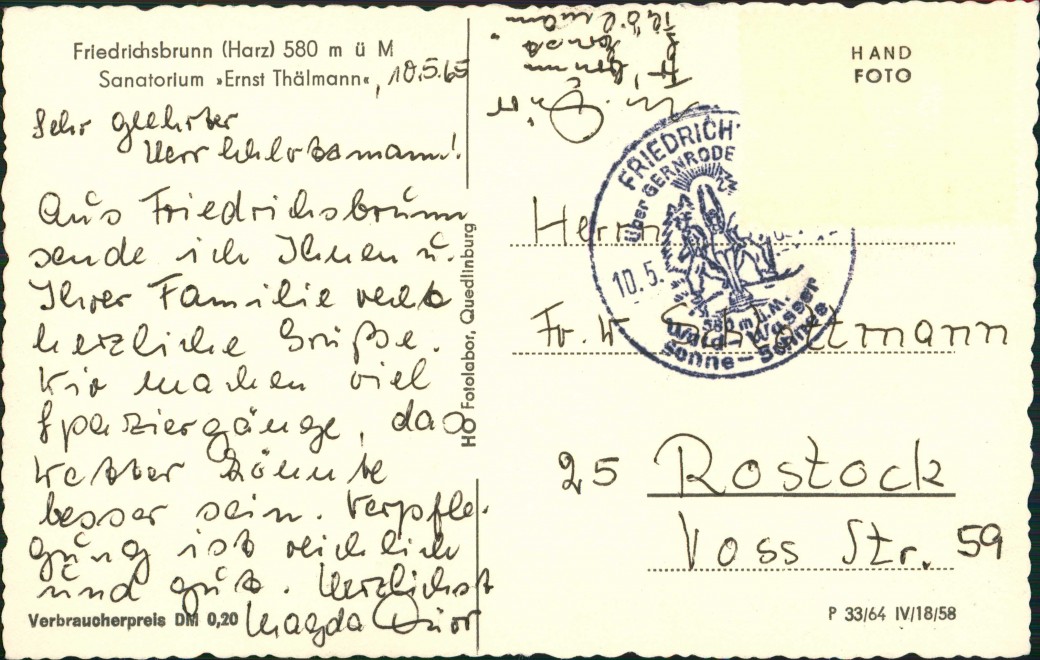 Friedrichsbrunn (Harz) 580 m ü M
Sanatorium »Ernst Thälmann«, 10.5.65
Sehr geehrter
Herr Schlotmann!
Aus Friedrichsbrunn
sende ich Ihnen u.
Ihrer Familie recht
herzliche Grüße.
Wir machen viel
Spaziergänge, das
Wetter könnte
besser sein. Verpfle-
gung ist reichlich
und gut. Herzlichst
Magda Dürr
Verbraucherpreis DM 0,20
HO Fotolabor, Quedlinburg
HAND
FOTO
FRIEDRICH
über GERNRODE
10.5.
580 m ü.M.
Wald-Wasser
Sonne-Schnee
Herrn
Fr. W
25 Rostock
Voss Str. 59
P 33/64 IV/18/58